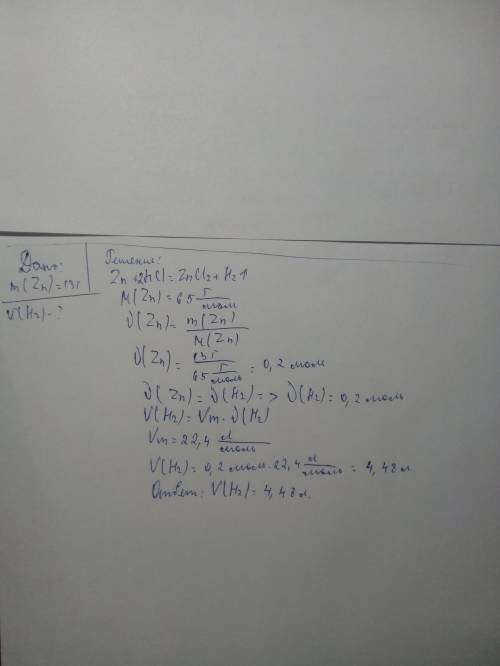 Дано:
m(Zn)=13г
V(H₂)-?
Решение:
Zn+2HCl=ZnCl₂+H₂↑
M(Zn)=65 г/моль
ν(Zn)= m(Zn)/M(Zn)
ν(Zn)= 13г/65 г/моль = 0,2 моль
ν(Zn)=ν(H₂)=>ν(H₂)=0,2 моль
V(H₂)=Vm·ν(H₂)
Vm=22,4 л/моль
V(H₂)=0,2 моль·22,4 л/моль = 4,48л
Ответ: V(H₂)=4,48л.